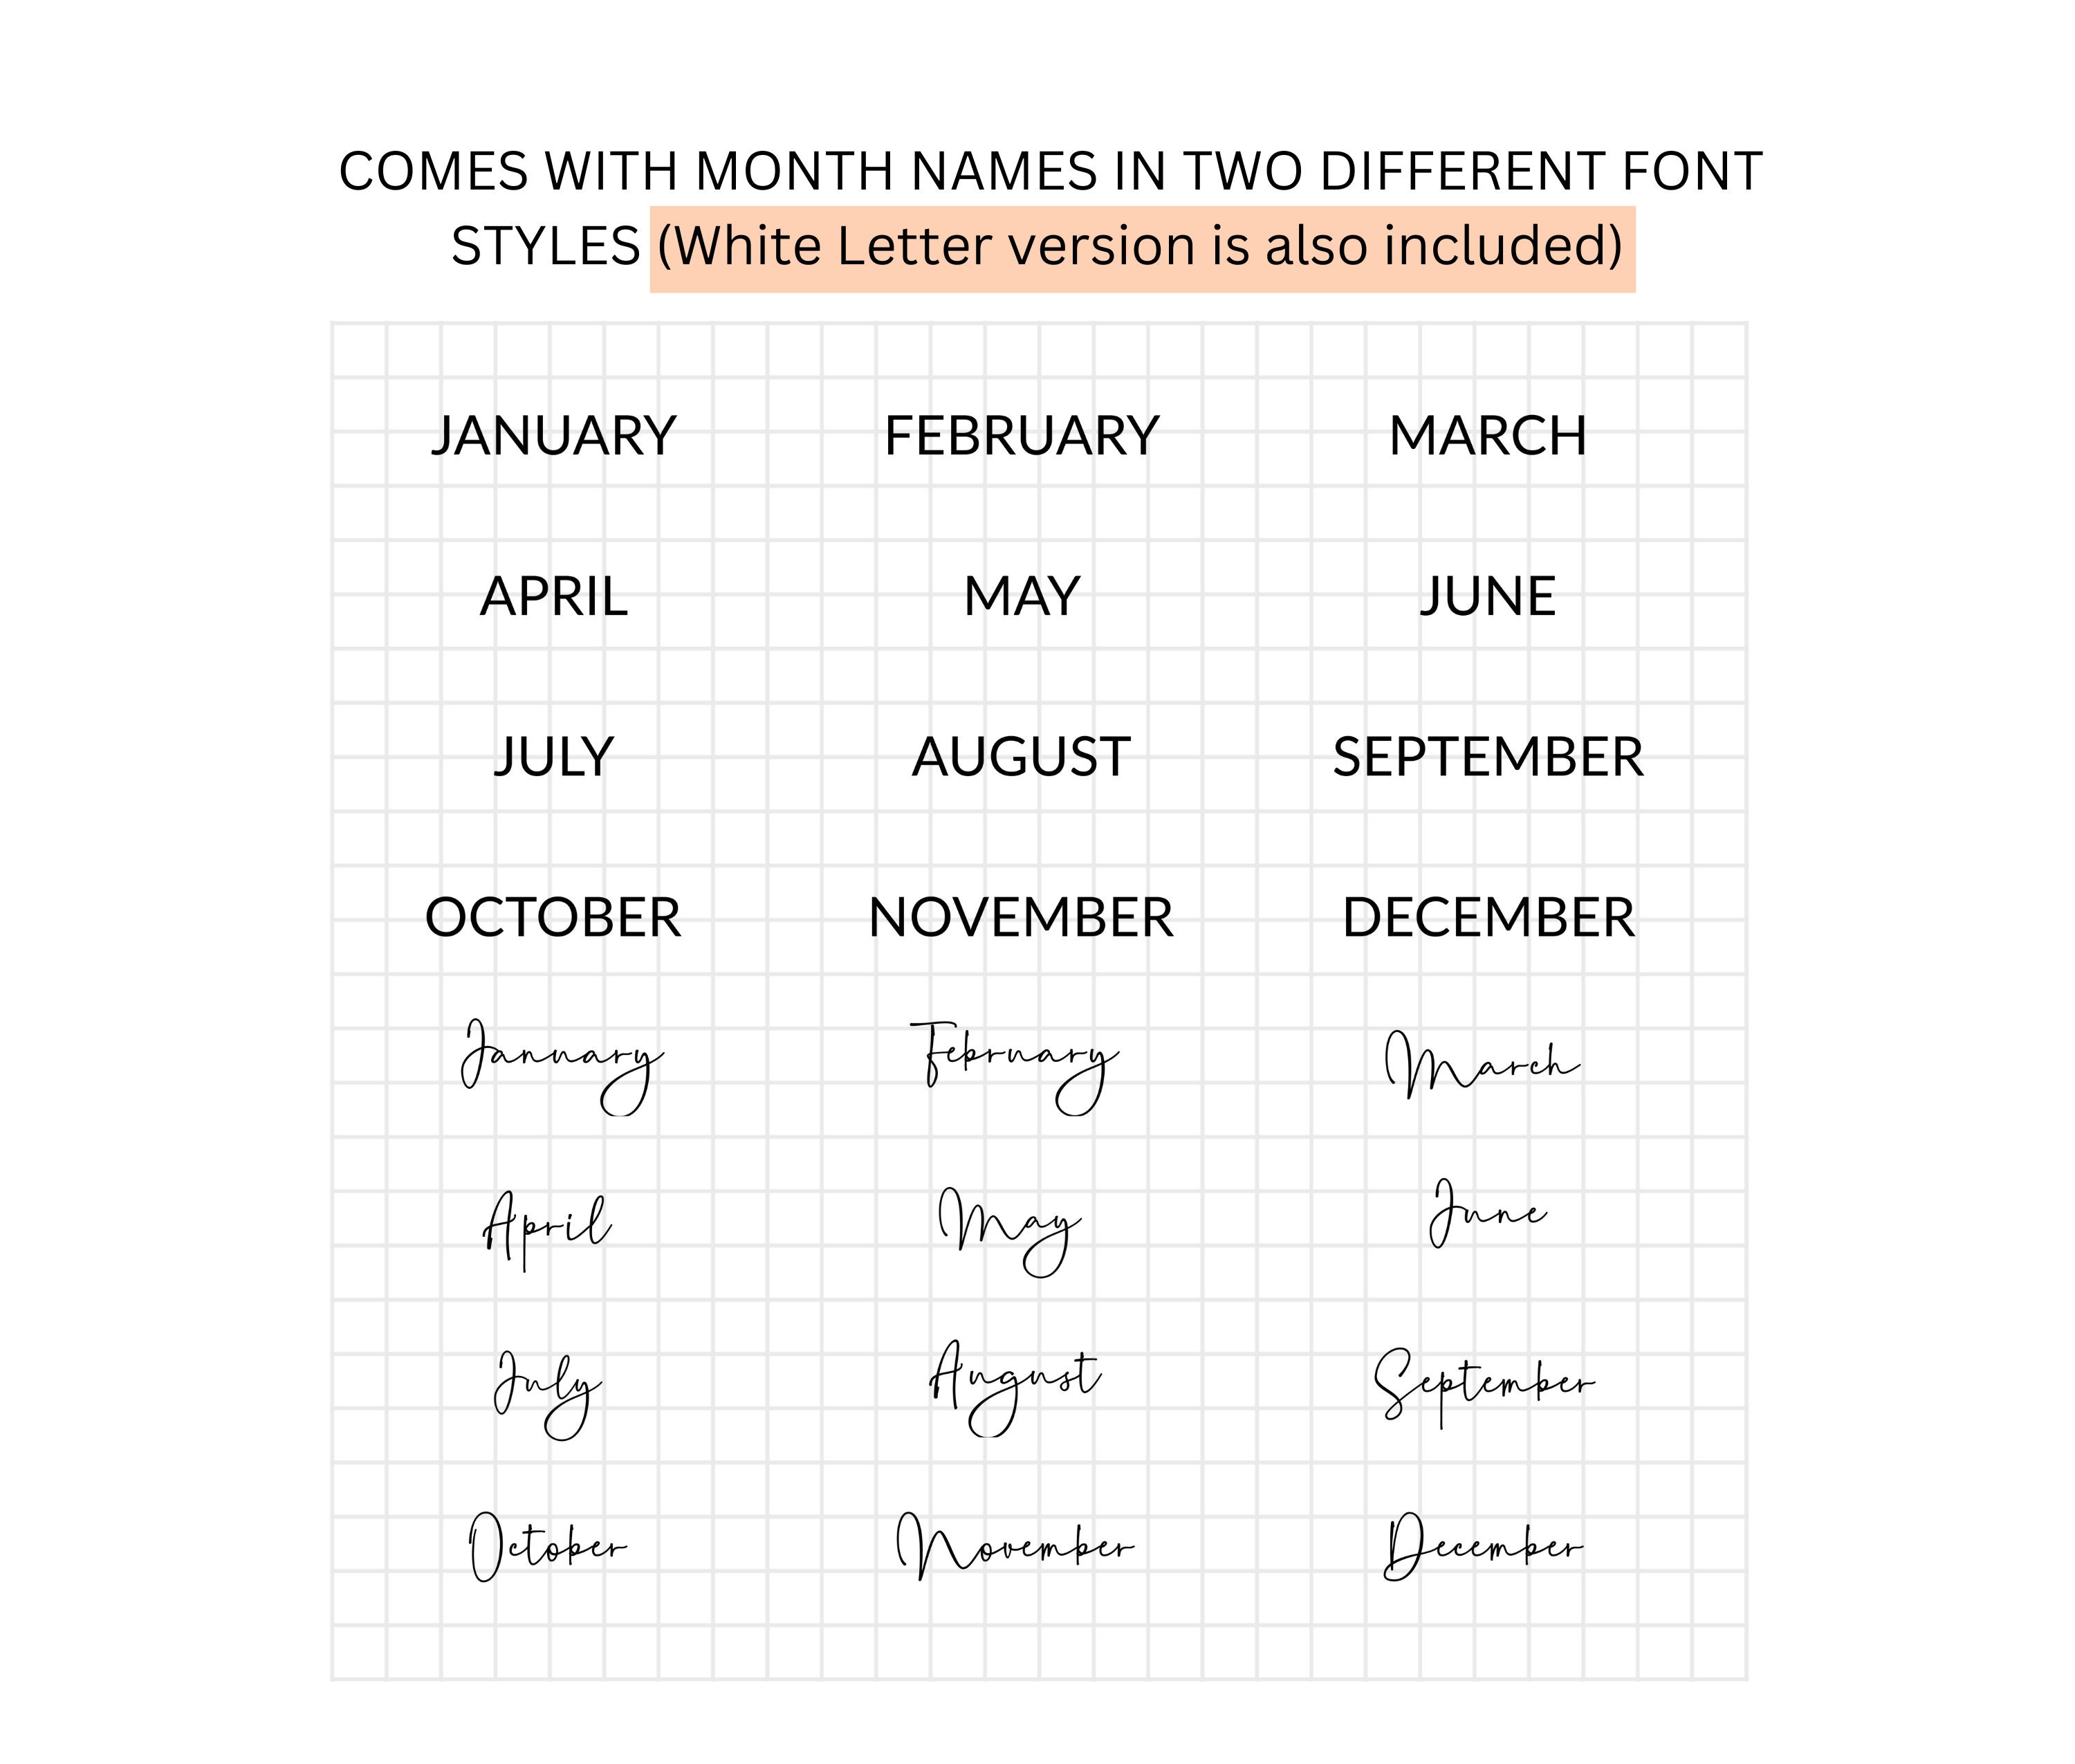 COMES WITH MONTH NAMES IN TWO DIFFERENT FONT
STYLES (White Letter version is also included)
JANUARY FEBRUARY MARCH
APRIL MAY JUNE
JULY AUGUST SEPTEMBER
OCTOBER NOVEMBER DECEMBER
January February March
April May June
July August September
October November December